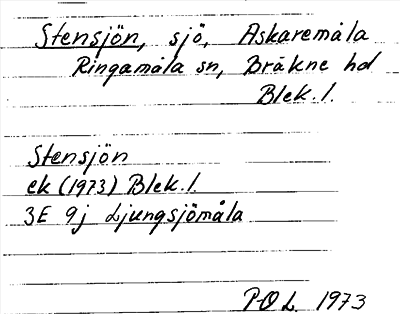 Stensjön, sjö, Askaremåla
Ringamåla sn, Bräkne hd
Blek. l.
Stensjön
ek (1973) Blek. l.
3E 9j Ljungsjömåla
P-O L. 1973